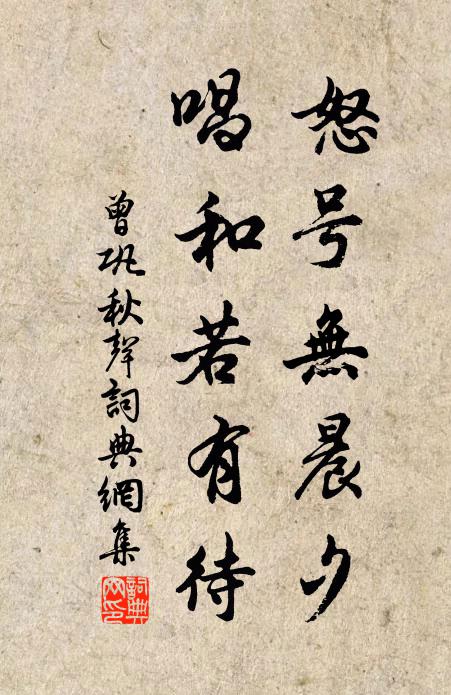 怒号無晨夕
唱和若有待
曾巩秋聲詞典網集
詞典網印